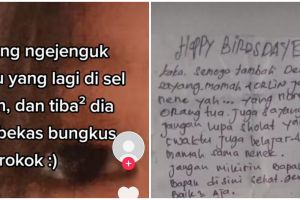 ng ngejenguk
u yang lagi di sel
n, dan tiba² dia
bekas bungkus
rokok :)
HAPPY BIRDSDAYE
kaka. semoga tambah De
sayang. mamah & erlin
nene yah... yang nurut
orang tua. juga sayang
jangan lupa sholat
waktu juga belajar
mamah sama nenek.
jangan mikirin bapak
bapak disini sehat.
baik2 AJA.